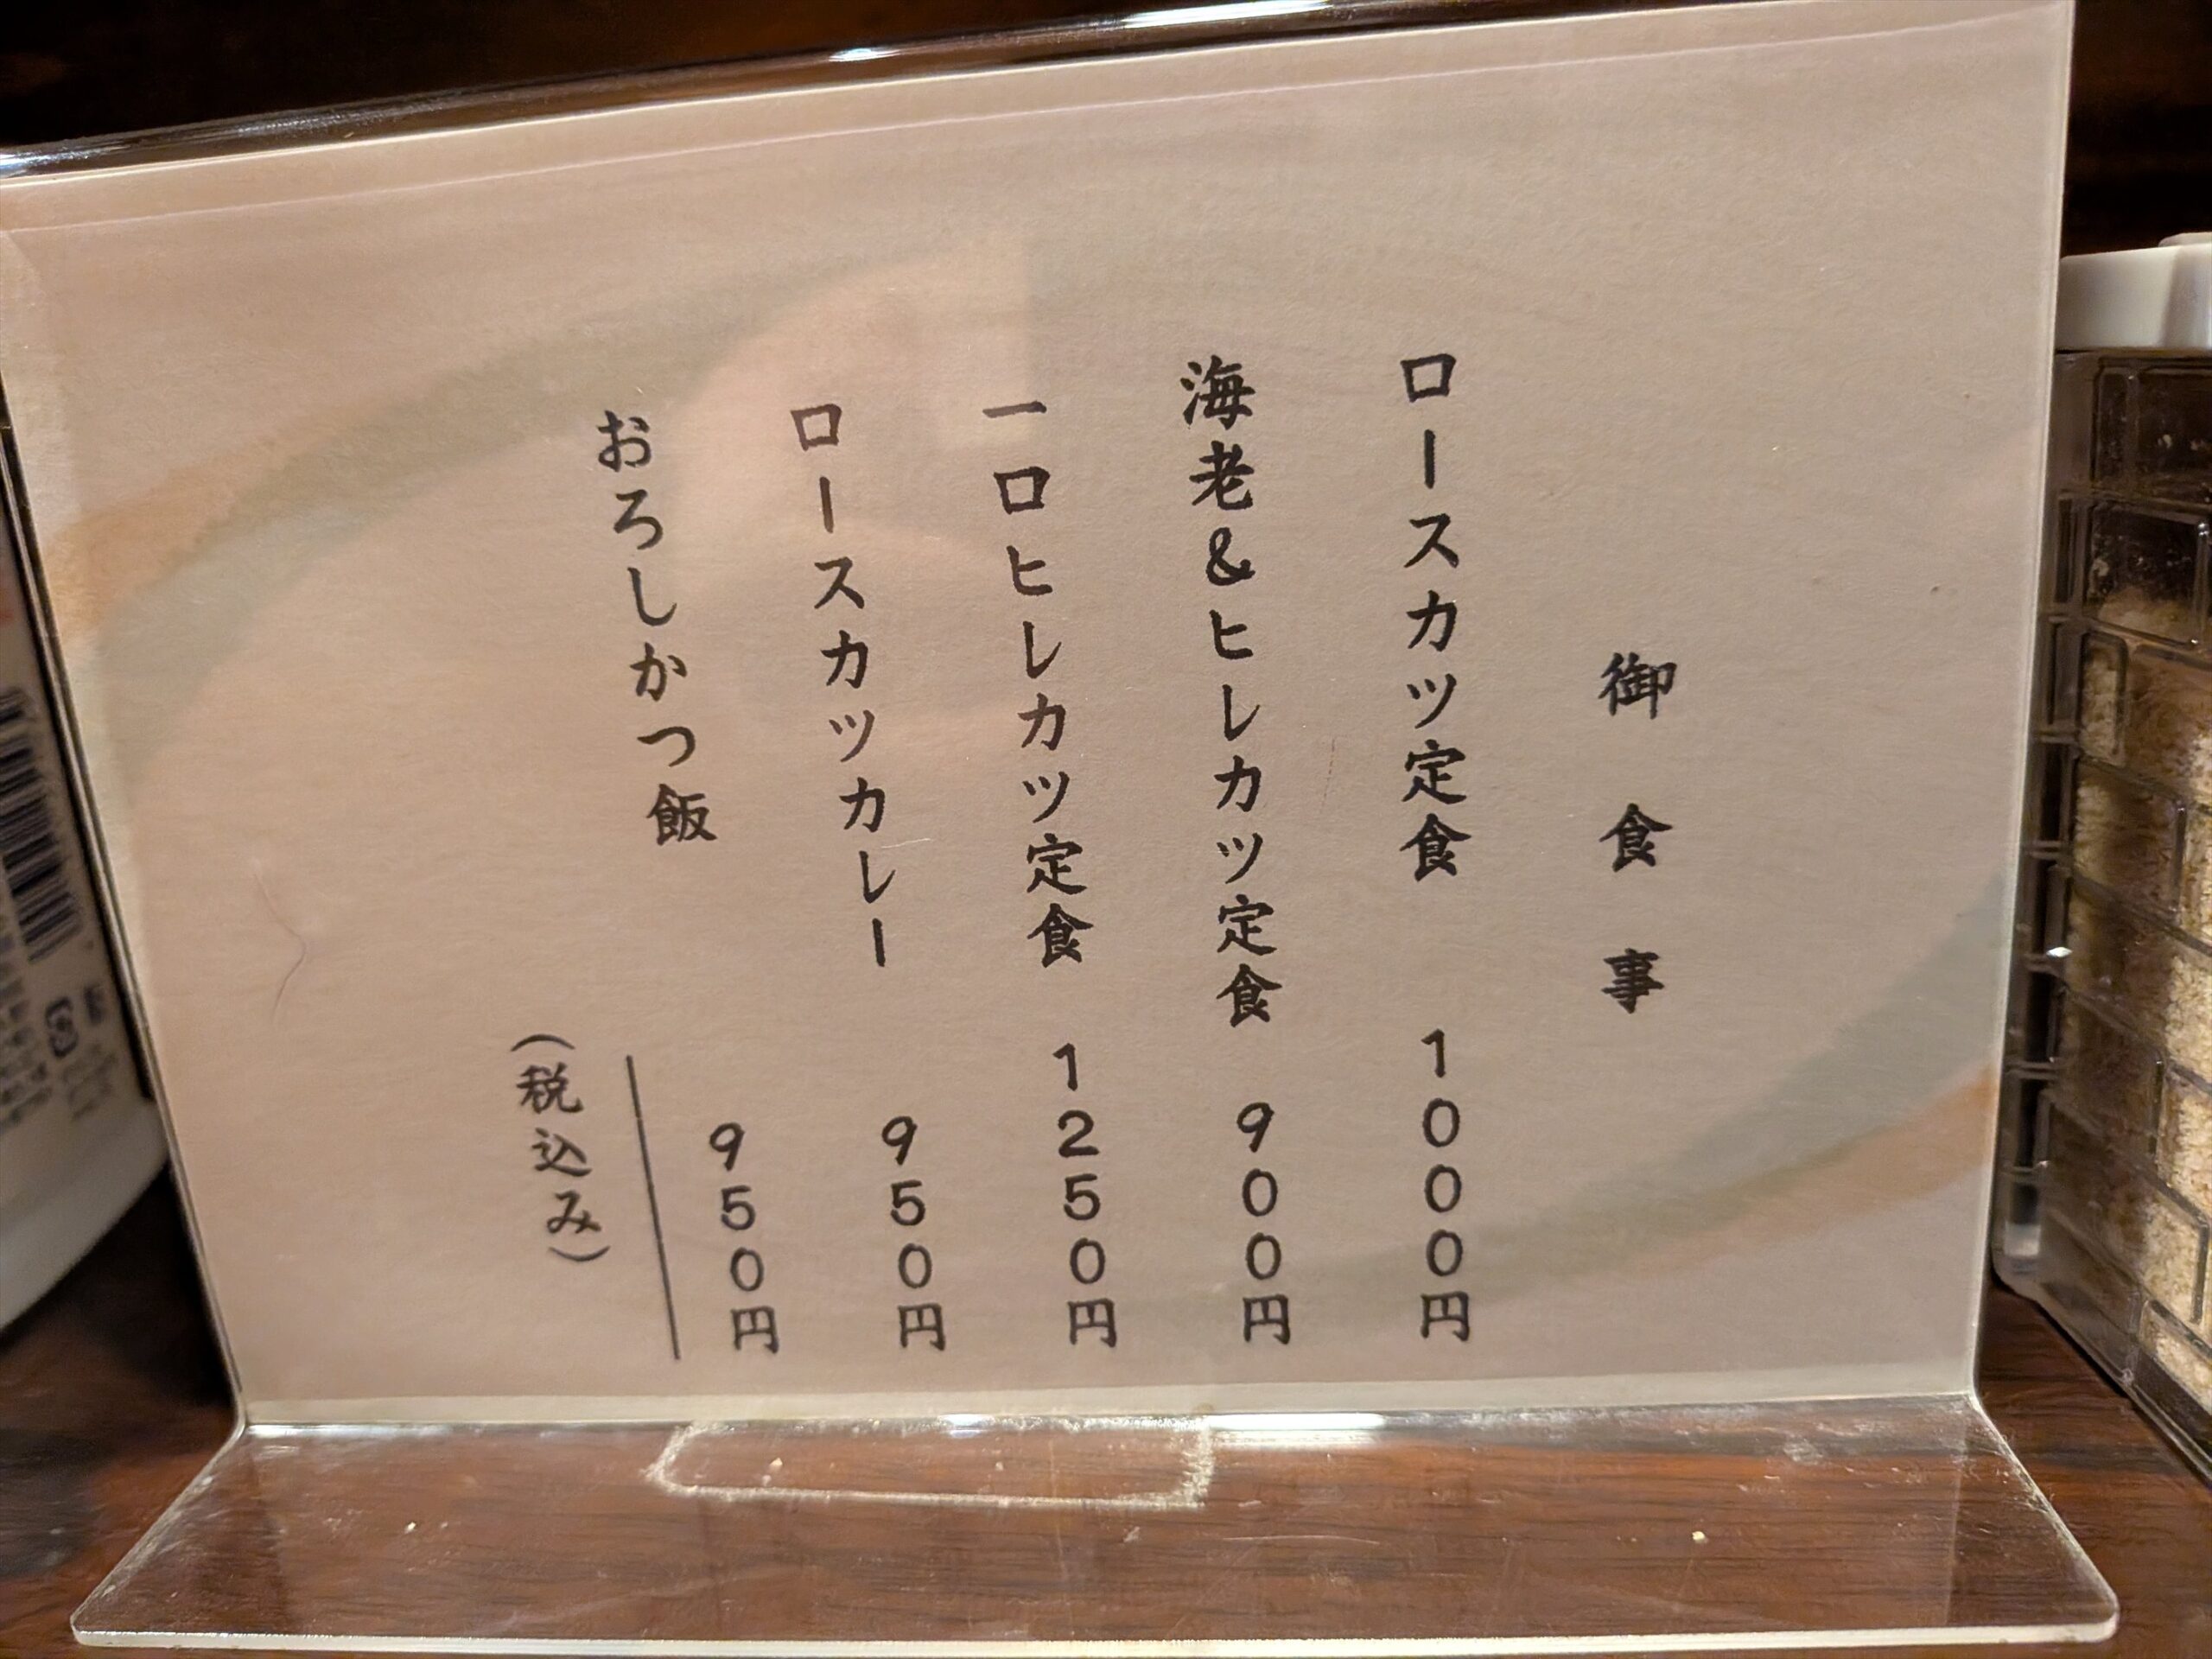 御食事
ロースカツ定食 1000円
海老&ヒレカツ定食 900円
一口ヒレカツ定食 1250円
ロースカツカレー 950円
おろしかつ飯 950円
（税込み）